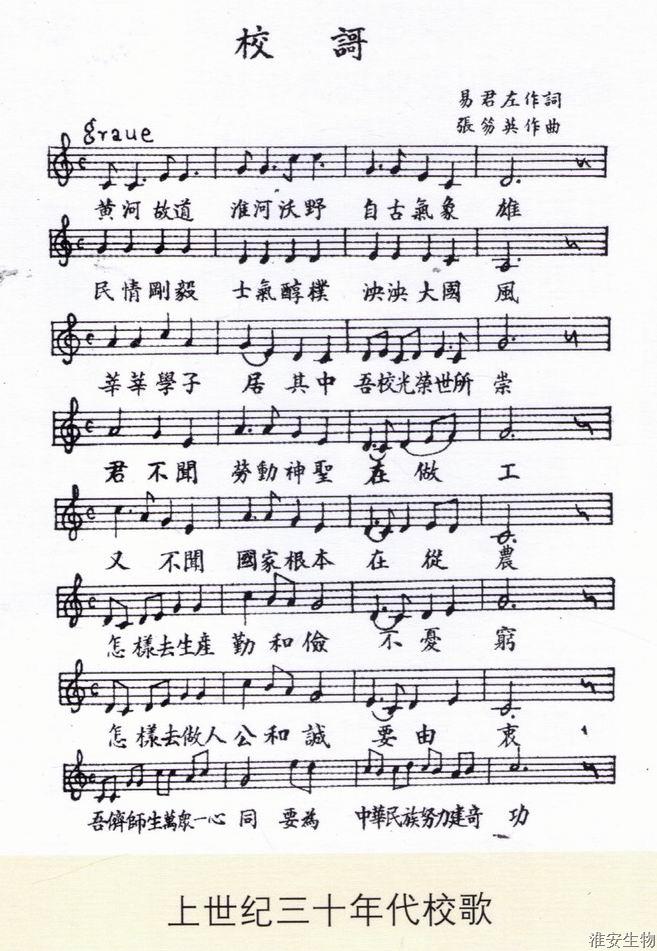 校 謌
易君左作詞
張笏英作曲
graue
黄河故道 淮河沃野 自古氣象 雄
民情剛毅 士氣醇樸 泱泱大國 風
莘莘學子 居其中 吾校光榮世所 崇
君不聞 勞動神聖 在做 工
又不聞 國家根本 在從 農
怎樣去生産 勤和儉 不憂 窮
怎樣去做人 公和誠 要由 衷
吾儕師生萬衆一心 同 要為 中華民族努力建奇 功
上世纪三十年代校歌
淮安生物